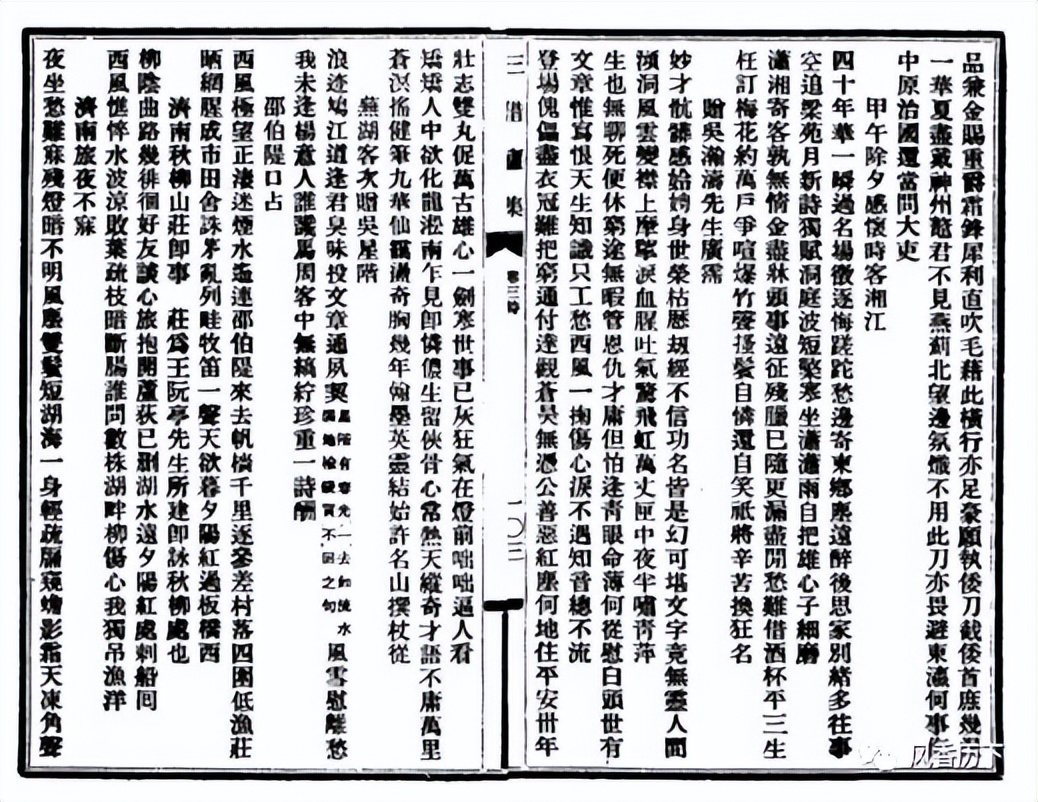 品兼金賜重爵霜鋒犀利直吹毛藉此橫行亦足豪願執倭刀截倭首庶幾
一華夏盡戴神州籠君不見燕薊北望邊氛熾不用此刀亦畏避東瀛何事
中原治國還當問大吏
甲午除夕感懷時客湘江
四十年華一瞬過名場徵逐悔蹉跎愁邊寄東鄉塵遠醉後思家別緒多往事
空追梁苑月新詩獨賦洞庭波短檠寒坐瀟瀟雨自把雄心子細磨
瀟湘寄客孰無情金盡牀頭事遠征殘臘已隨更漏盡閒愁難借酒杯平三生
枉訂梅花約萬戶爭喧爆竹聲搔髮自憐還自笑祇將辛苦換狂名
贈吳瀚濤先生廣霈
妙才骯髒感姶婀身世榮枯歷劫經不信功名皆是幻可堪文字竟無靈人間
澒洞風雲變襟上摩挲淚血腥吐氣驚飛虹萬丈匣中夜半嘯青萍
生也無聊死便休窮途無暇管恩仇才庸但怕逢青眼命薄何從慰白頭世有
文章惟寫恨天生知識只工愁西風一掬傷心淚不遇知音總不流
登場傀儡盡衣冠難把窮通付達觀蒼昊無憑公善惡紅塵何地住平安卅年
三借廬集
卷三詩
一〇三
壯志雙丸促萬古雄心一劍寒世事已灰狂氣在燈前咄咄逼人看
矯矯人中欲化龍淞南乍見即憐儂生留俠骨心常熱天縱奇才語不庸萬里
蒼溟搖健筆九華仙靄盪奇胸幾年翰墨英靈結始許名山撰杖從
蕪湖客次贈吳星階
浪迹鳩江道逢君臭味投文章通夙契 風雪慰離愁
我未逢楊意人誰識馬周客中無縞紵珍重一詩酬
邵伯隄口占
西風極望正淒迷煙水遙連邵伯隄來去帆檣千里逐參差村落四圍低漁莊
晒網腥成市田舍誅茅亂列畦牧笛一聲天欲暮夕陽紅過板橋西
濟南秋柳山莊即事 莊為王阮亭先生所建即詠秋柳處也
柳陰曲路幾徘徊好友談心旅抱開蘆荻已刪湖水遠夕陽紅處刺船囘
西風憔悴水波涼敗葉疏枝暗斷腸誰問數株湖畔柳傷心我獨吊漁洋
濟南旅夜不寐
夜坐愁難寐殘燈暗不明風塵雙鬢短湖海一身輕疏牖窺蟾影霜天凍角聲
风香历下